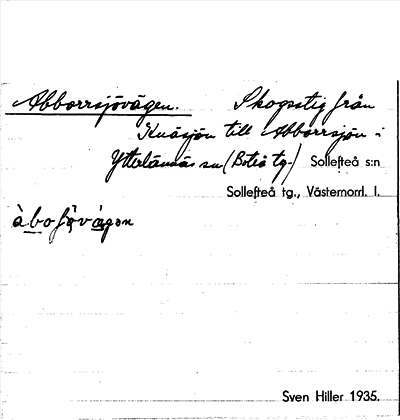 Abborrsjövägen. Skogsstig från
Knäsjön till Abborrsjön i
Ytterlännäs sn (Boteå tg.) Sollefteå s:n
Sollefteå tg., Västernorrl. l.
Sven Hiller 1935.